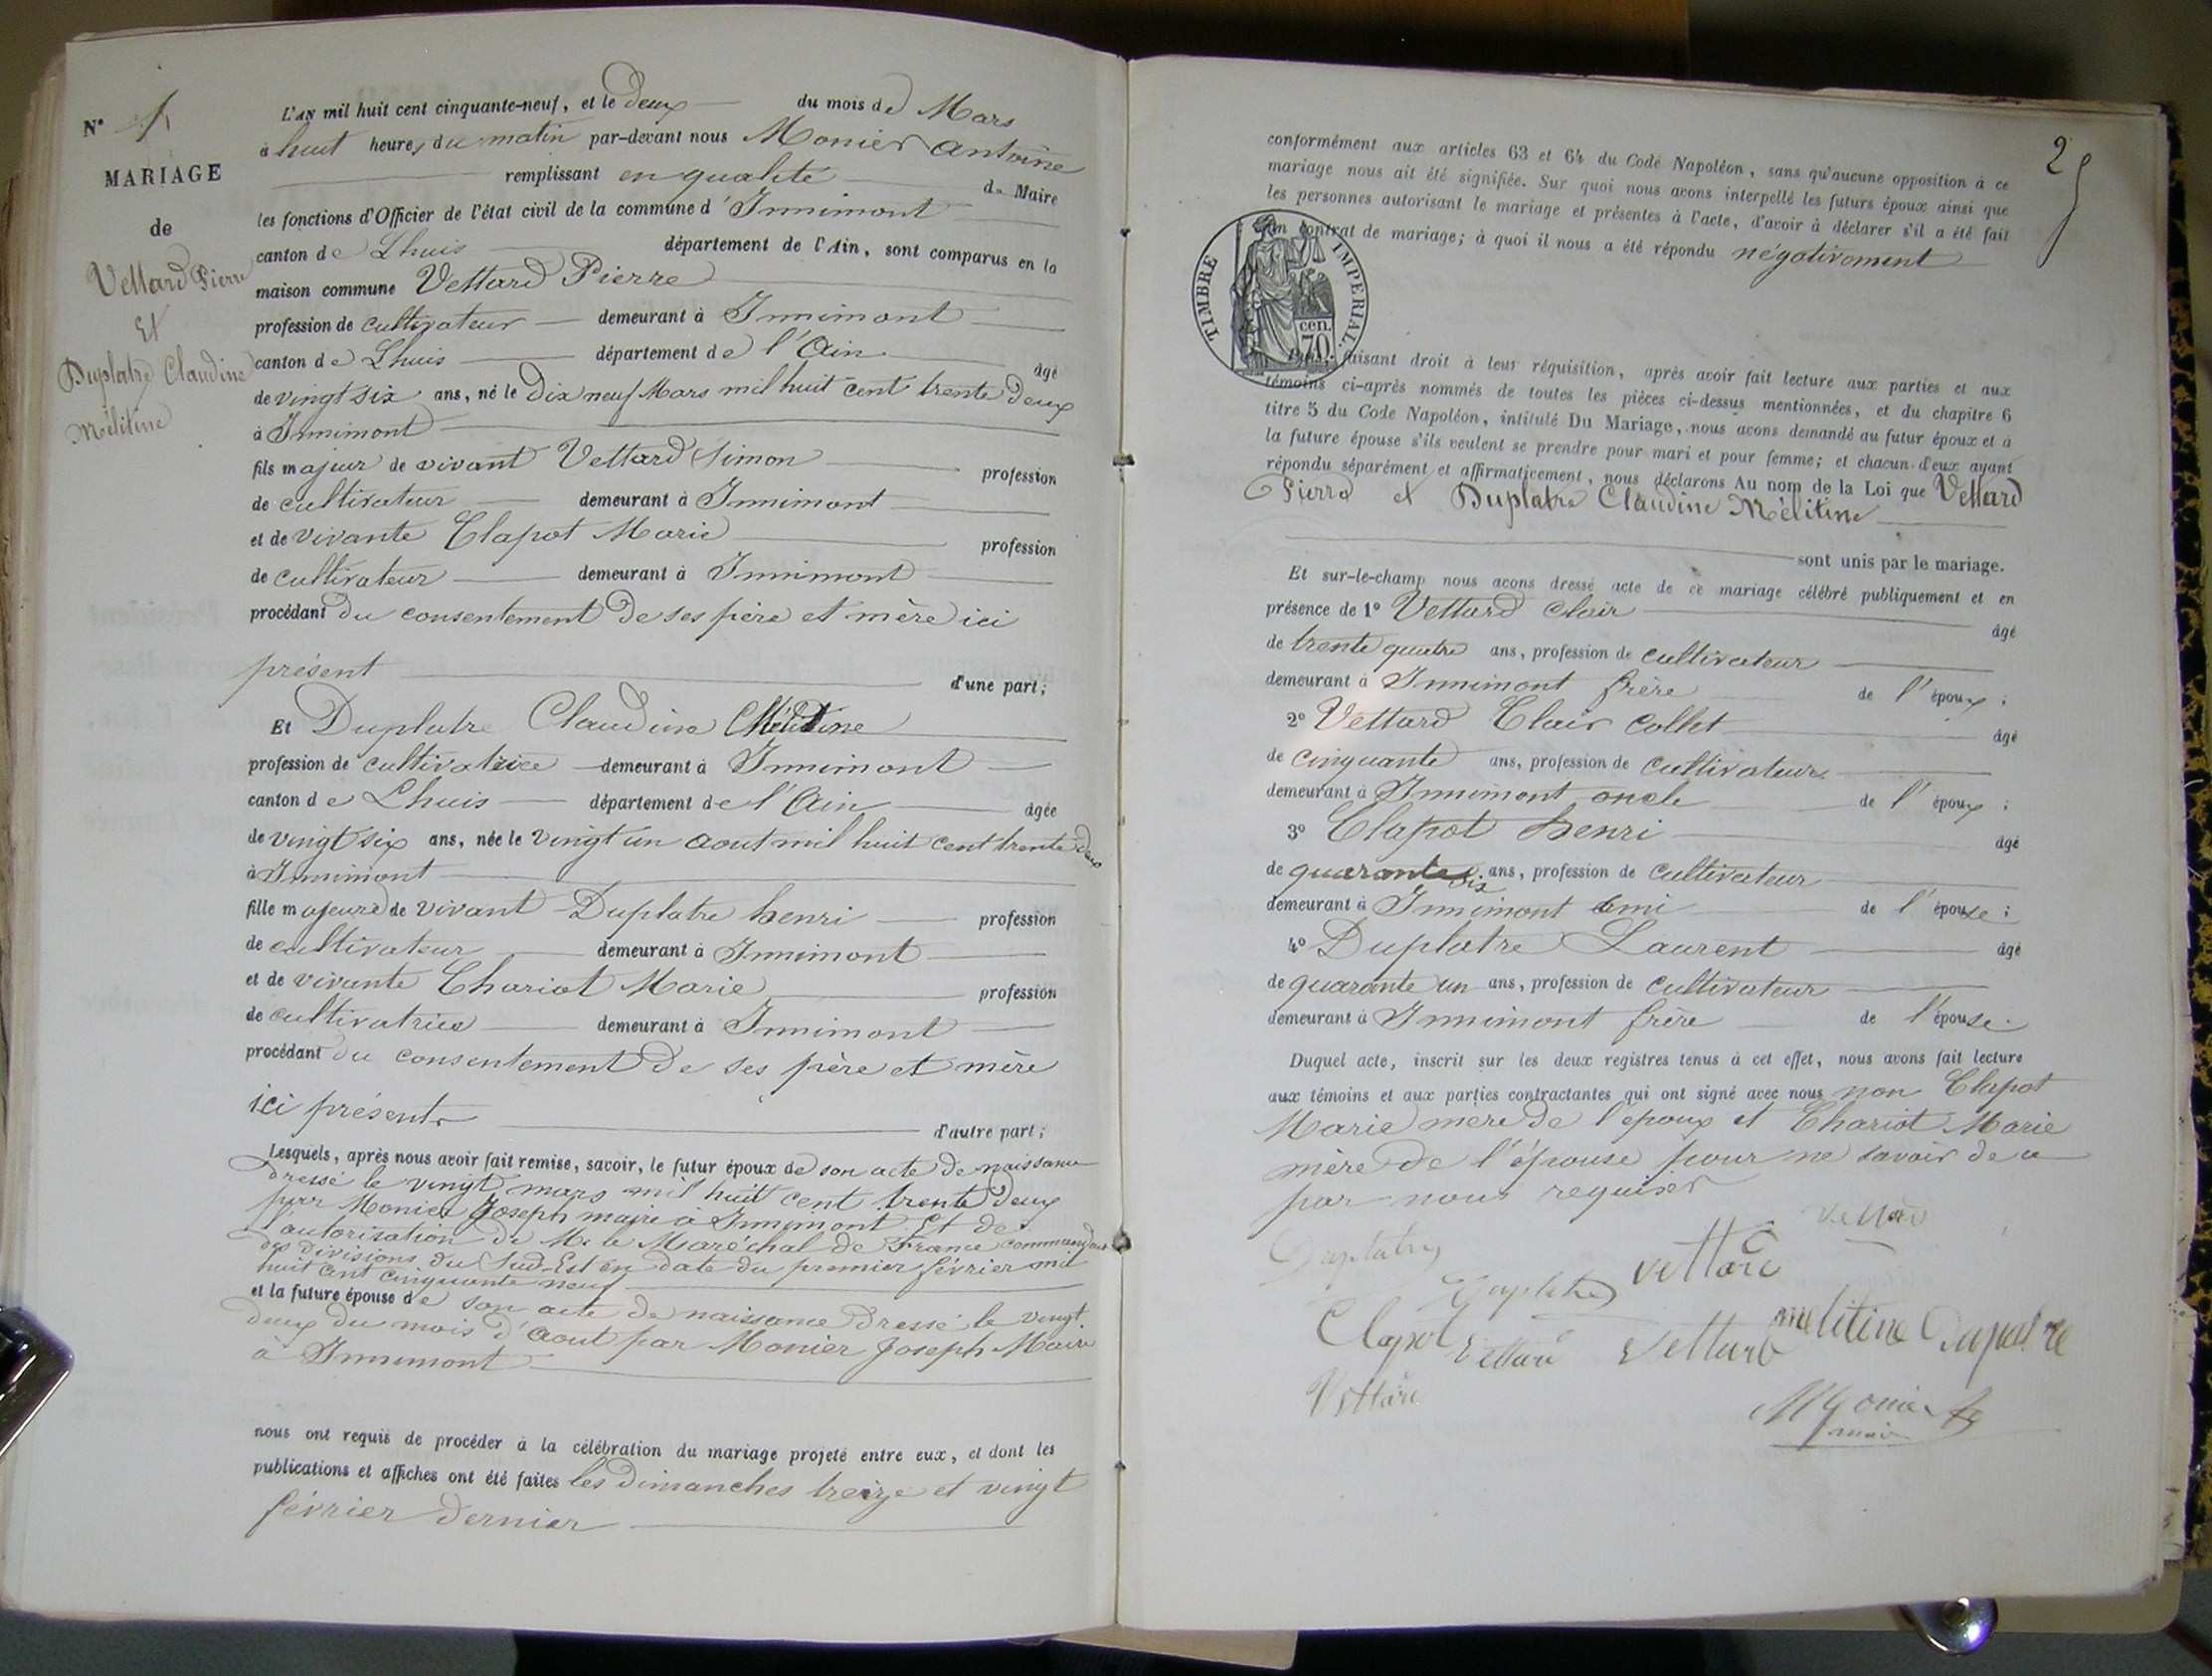 N° 1
MARIAGE
de
Vettard Pierre
Et
Duplatre Claudine
Mélitine
L'AN mil huit cent cinquante-neuf, et le deux du mois de Mars
à huit heures du matin par-devant nous Monier Antoine
remplissant en qualité de Maire
les fonctions d'Officier de l'état civil de la commune d'Innimont
canton de Lhuis département de l'Ain, sont comparus en la
maison commune Vettard Pierre
profession de cultivateur demeurant à Innimont
canton de Lhuis département de l'Ain âgé
de vingt six ans, né le Dix neuf Mars mil huit cent trente deux
à Innimont
fils majeur de vivant Vettard Simon profession
de cultivateur demeurant à Innimont
et de vivante Clapot Marie profession
de cultivateur demeurant à Innimont
procédant du consentement de ses père et mère ici
présent d'une part;
Et Duplatre Claudine Mélitine
profession de cultivatrice demeurant à Innimont
canton de Lhuis département de l'Ain âgée
de vingt six ans, née le vingt un aout mil huit cent trente deux
à Innimont
fille majeure de vivant Duplatre henri profession
de cultivateur demeurant à Innimont
et de vivante Chariot Marie profession
de cultivatrice demeurant à Innimont
procédant du consentement de ses père et mère
ici présents d'autre part;
Lesquels, après nous avoir fait remise, savoir, le futur époux de son acte de naissance
dressé le vingt mars mil huit cent trente deux
par Monier Joseph maire à Innimont Et de
l'autorisation de Mr le Maréchal de France commandant
des divisions du Sud-Est en date du premier février mil
huit cent cinquante neuf
et la future épouse de son acte de naissance dressé le vingt
deux du mois d'aout par Monier Joseph Maire
à Innimont
nous ont requis de procéder à la célébration du mariage projeté entre eux, et dont les
publications et affiches ont été faites les dimanches treize et vingt
février dernier
25
conformément aux articles 63 et 64 du Code Napoléon, sans qu'aucune opposition à ce
mariage nous ait été signifiée. Sur quoi nous avons interpellé les futurs époux ainsi que
les personnes autorisant le mariage et présentes à l'acte, d'avoir à déclarer s'il a été fait
un contrat de mariage; à quoi il nous a été répondu négativement
TIMBRE IMPERIAL
70 cen.
faisant droit à leur réquisition, après avoir fait lecture aux parties et aux
témoins ci-après nommés de toutes les pièces ci-dessus mentionnées, et du chapitre 6
titre 5 du Code Napoléon, intitulé Du Mariage, nous avons demandé au futur époux et à
la future épouse s'ils veulent se prendre pour mari et pour femme; et chacun d'eux ayant
répondu séparément et affirmativement, nous déclarons Au nom de la Loi que Vettard
Pierre et Duplatre Claudine Mélitine
sont unis par le mariage.
Et sur-le-champ nous avons dressé acte de ce mariage célébré publiquement et en
présence de 1° Vettard Clair âgé
de trente quatre ans, profession de cultivateur
demeurant à Innimont frère de l'époux;
2° Vettard Clair Collet âgé
de cinquante ans, profession de cultivateur
demeurant à Innimont oncle de l'époux;
3° Clapot henri âgé
de quarante six ans, profession de cultivateur
demeurant à Innimont ami de l'épouse;
4° Duplatre Laurent âgé
de quarante un ans, profession de cultivateur
demeurant à Innimont frère de l'épouse.
Duquel acte, inscrit sur les deux registres tenus à cet effet, nous avons fait lecture
aux témoins et aux parties contractantes qui ont signé avec nous non Clapot
Marie mère de l'époux et Chariot Marie
mère de l'épouse pour ne savoir de ce
par nous requises
Vettard
Duplatre
Duplatre Vettard
Clapot Vettard Vettard melitine Dupatre
Vettard
Monier
maire